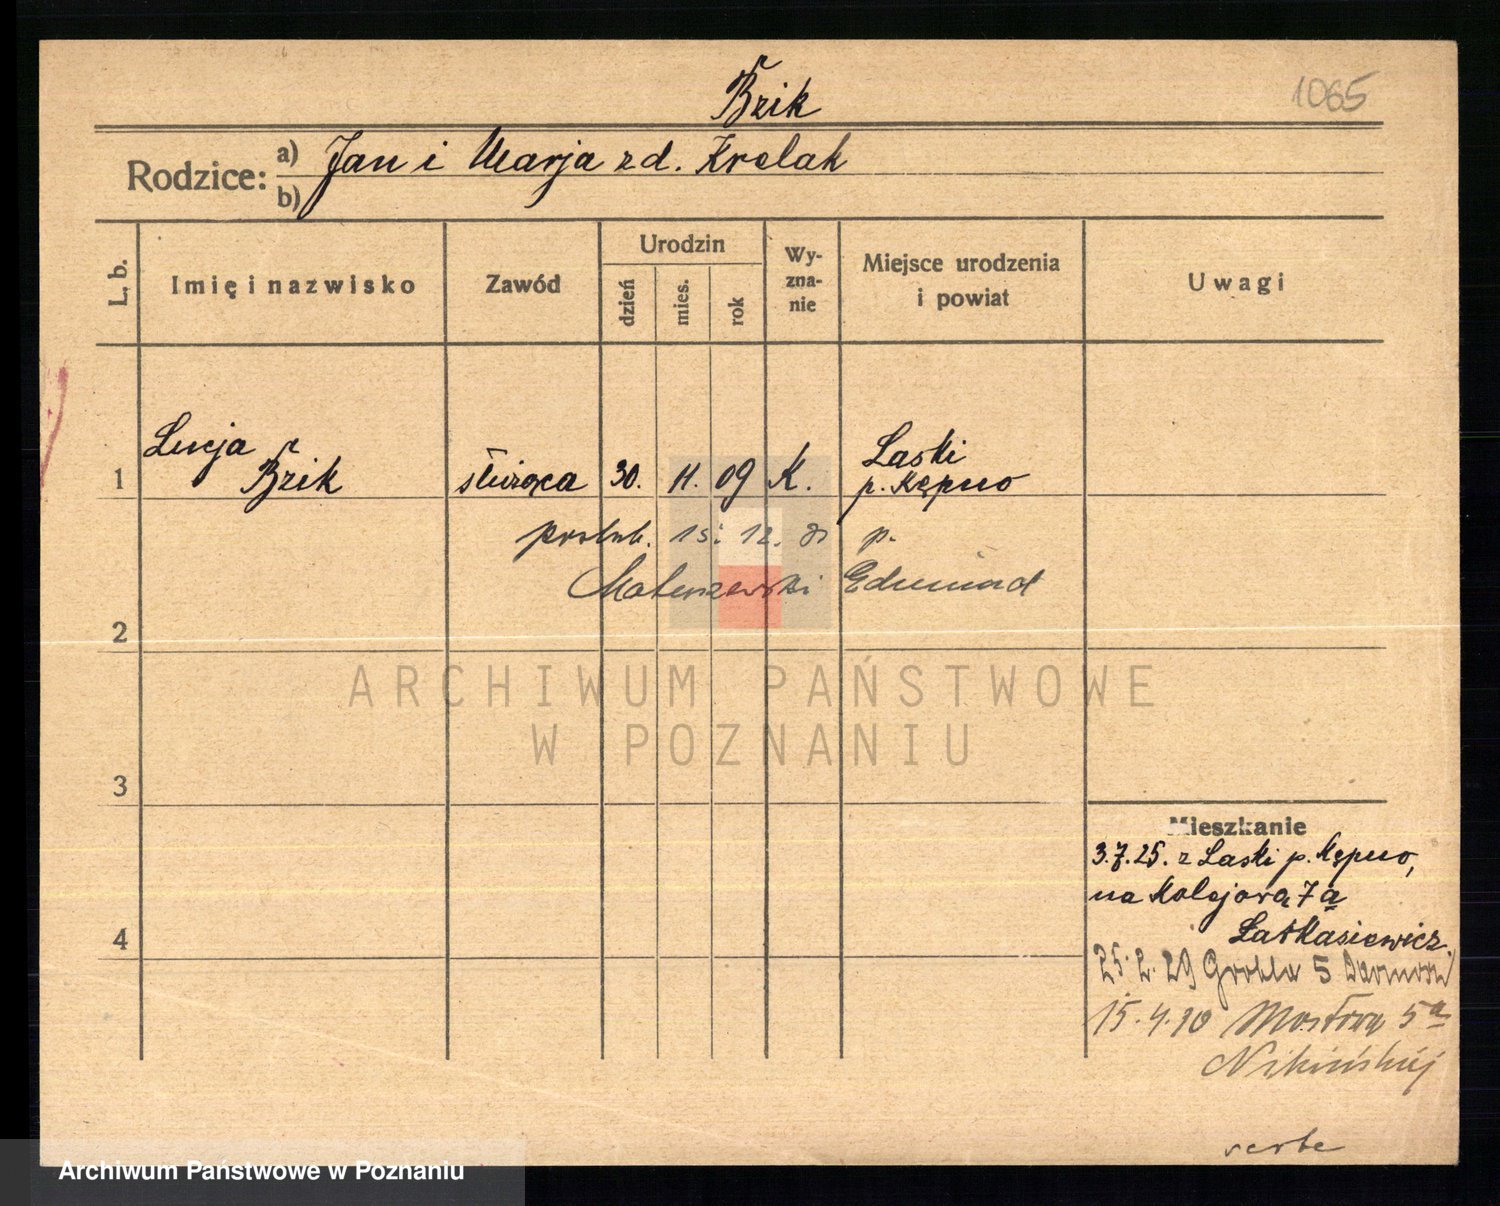 Bzik
1065
Rodzice: a) Jan i Marja zd. Krolak
b)
L. b.
Imię i nazwisko
Zawód
Urodzin
dzień
mies.
rok
Wy-
zna-
nie
Miejsce urodzenia
i powiat
Uwagi
Łucja
1 Bzik służąca 30. 11. 09 K. Laski
p. Kępno
poślub. 15. 12. 31 p.
Matuszewski Edmund
2
ARCHIWUM PAŃSTWOWE
W POZNANIU
3
Mieszkanie
3.7.25. z Laski p. Kępno,
na Kolejową 7a
4
25.2.29 Grobla 5
15.4.30 Mostowa 5a
Archiwum Państwowe w Poznaniu